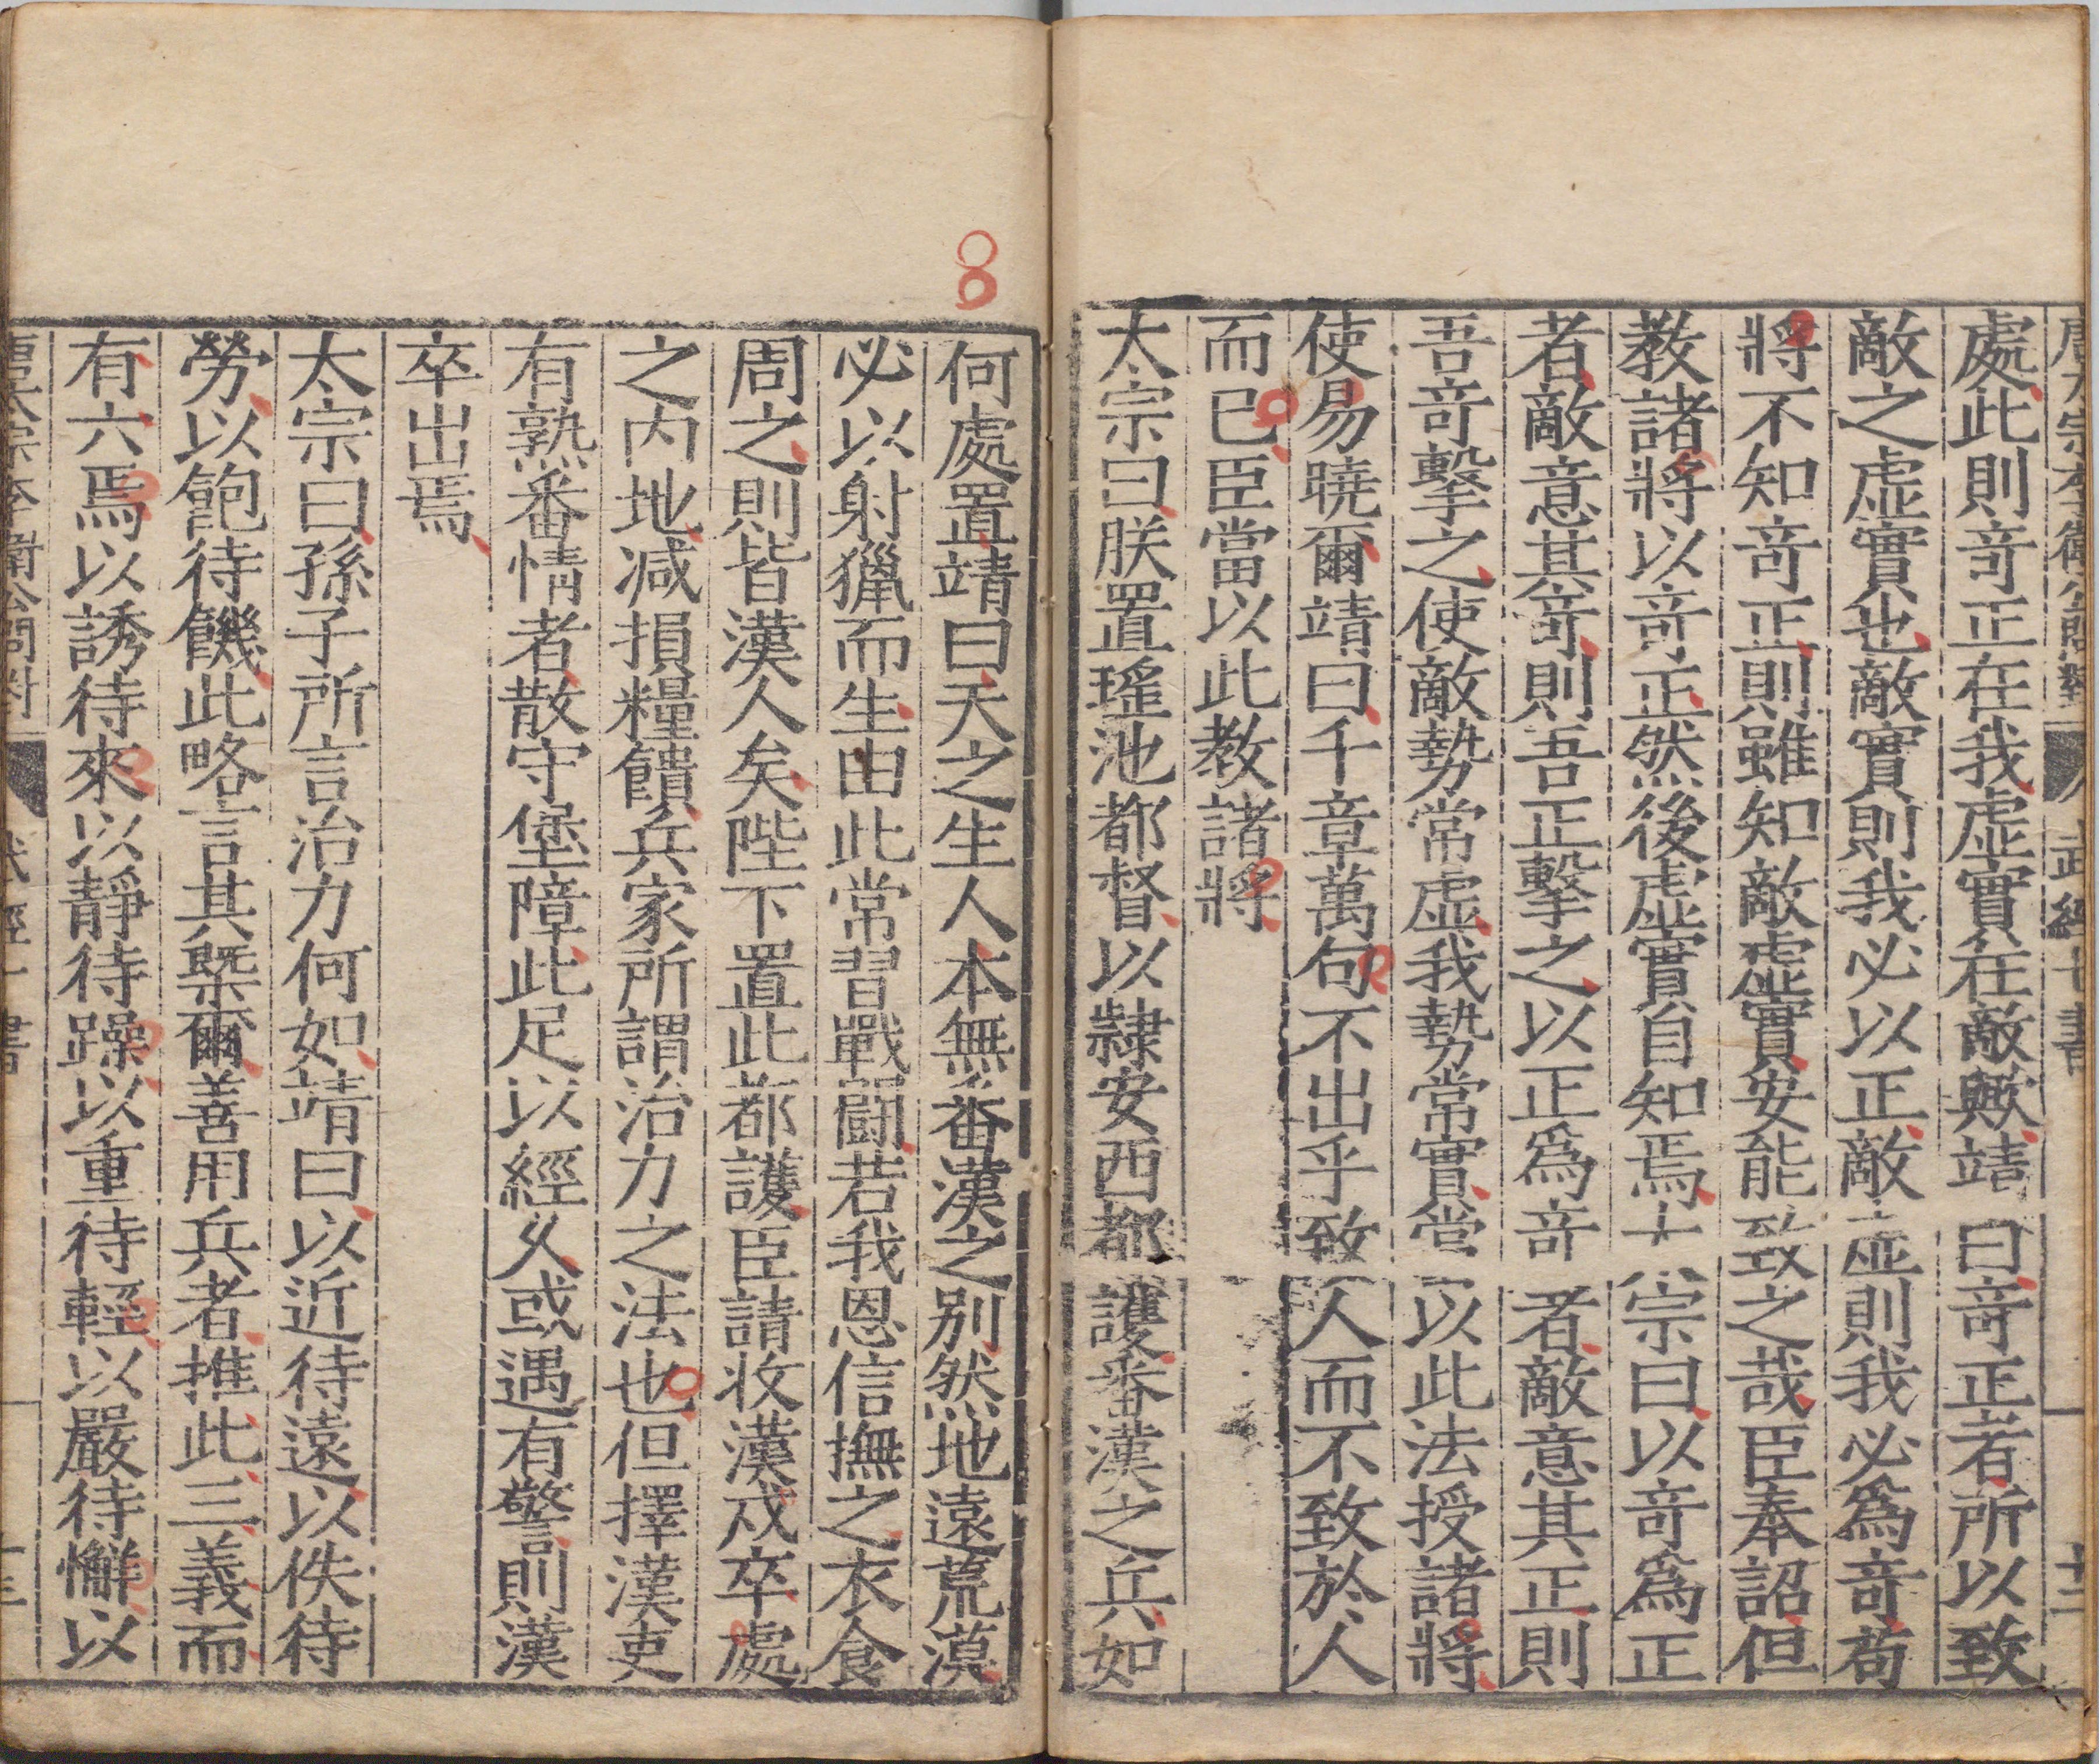 處此則竒正在我虛實在敵歟靖曰竒正者所以致
敵之虛實也敵實則我必以正敵虛則我必爲竒苟
將不知竒正則雖知敵虛實安能致之哉臣奉詔但
教諸將以竒正然後虛實自知焉太宗曰以竒爲正
者敵意其竒則吾正擊之以正爲竒者敵意其正則
吾竒擊之使敵勢常虛我勢常實當以此法授諸將
使易曉爾靖曰千章萬句不出乎致人而不致於人
而已臣當以此教諸將
太宗曰朕置瑤池都督以隸安西都護番漢之兵如
何處置靖曰天之生人本無番漢之别然地遠荒漠
必以射獵而生由此常習戰鬪若我恩信撫之衣食
周之則皆漢人矣陛下置此都護臣請收漢戍卒處
之内地减損糧饋兵家所謂治力之法也但擇漢吏
有熟番情者散守堡障此足以經久或遇有警則漢
卒出焉
太宗曰孫子所言治力何如靖曰以近待遠以佚待
勞以飽待饑此略言其槩爾善用兵者推此三義而
有六焉以誘待來以靜待躁以重待輕以嚴待懈以